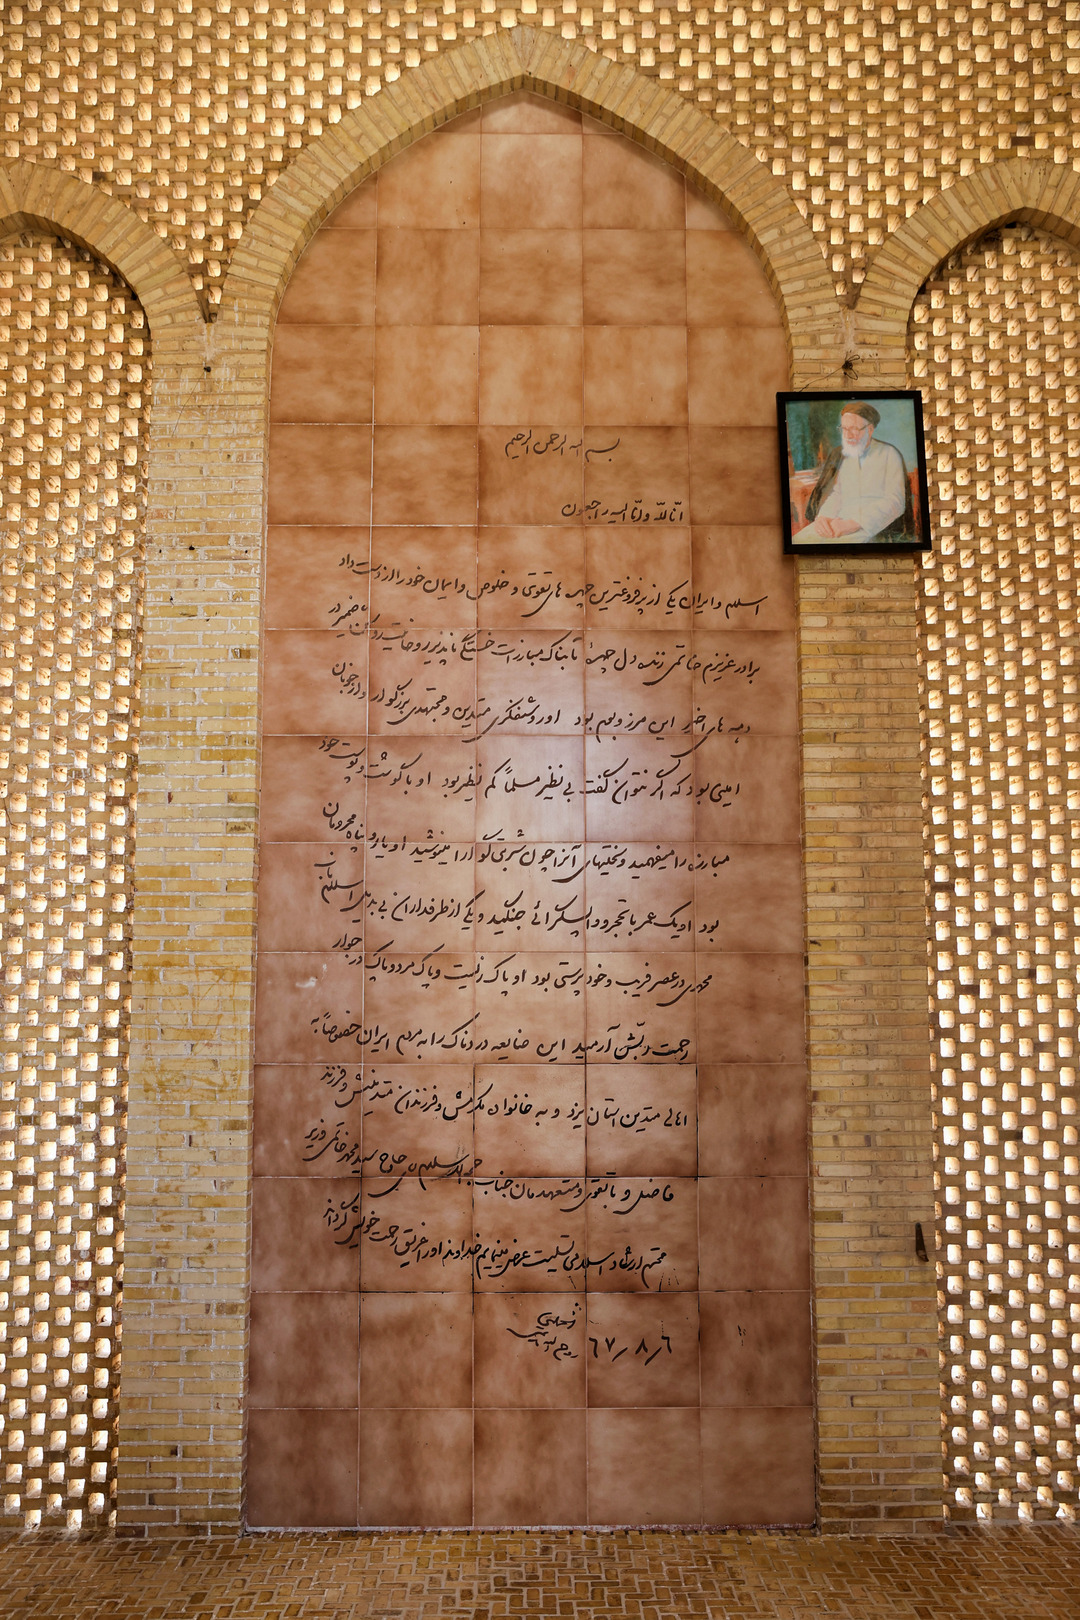 بسم الله الرحمن الرحیم
انّا للّه و انّا الیه راجعون
اسلام و ایران یکی از پرفروغترین چهره های تقوی و خلوص و ایمان خود را از دست داد
برادر عزیزم خاتمی زنده دل چهرهٔ تابناک مبارزات خستگی ناپذیر روحانیت روشن ضمیر در
دهه های اخیر این مرز و بوم بود او روشنفکری متدین و مجتهدی بزرگوار و از خوبان
امینی بود که اگر نتوان گفت بی نظیر مسلماً کم نظیر بود او با گوشت و پوست خود
مبارزه را میفهمید و سختیهای آنرا چون شربتی گوارا مینوشید او یار و پناه محرومان
بود او یک عمر با تحجر و واپسگرائی جنگید و یکی از طرفداران بی بدیل اسلام ناب
محمدی در عصر فریب و خودپرستی بود او پاک زیست و پاک مرد و پاک در جوار
رحمت ربّش آرمید این ضایعه دردناک را به مردم ایران خصوصاً به
اهالی متدین استان یزد و به خانواده مکرمش و فرزندان متدینش و فرزند
فاضل و باتقوی و متعهدمان جناب حجة الاسلام آقای حاج سید محمد خاتمی وزیر
محترم ارشاد اسلامی تسلیت عرض مینمایم خداوند او را غریق رحمت خویش گرداند
۶۷٫۸٫۶ روح الله الموسوی الخمینی